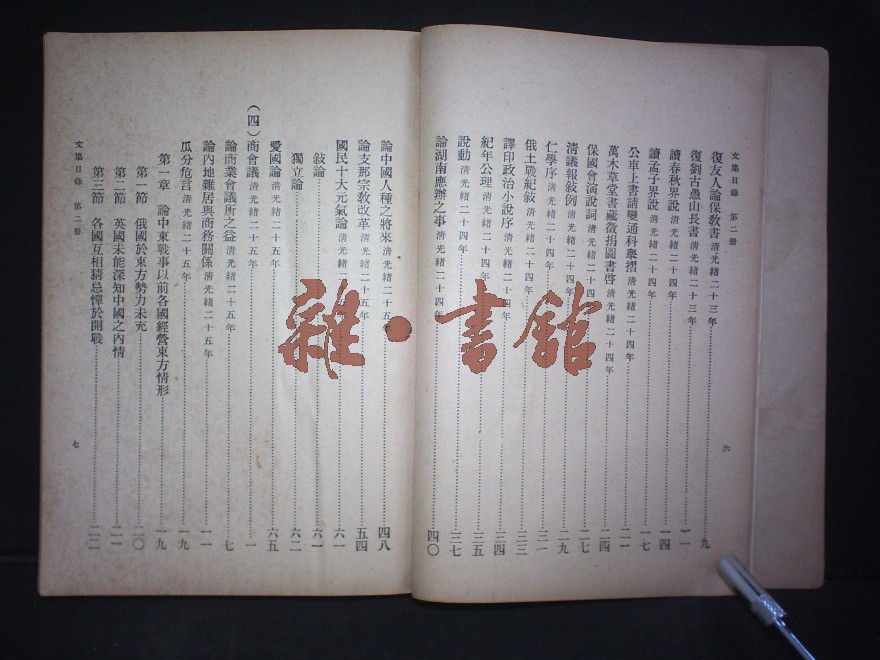 文集目錄 第二册
復友人論保教書 清光緒二十三年 九
復劉古愚山長書 清光緒二十三年 一一
讀春秋界說 清光緒二十四年 一四
讀孟子界說 清光緒二十四年 一七
公車上書請變通科舉摺 清光緒二十四年 二一
萬木草堂書藏徵捐圖書啓 清光緒二十四年 二四
保國會演說詞 清光緒二十四年 二七
清議報敘例 清光緒二十四年 二九
仁學序 清光緒二十四年 三一
俄土戰紀敘 清光緒二十四年 三三
譯印政治小說序 清光緒二十四年 三四
紀年公理 清光緒二十四年 三五
說動 清光緒二十四年 三七
論湖南應辦之事 清光緒二十四年 四〇
六
論中國人種之將來 清光緒二十五年 四八
論支那宗教改革 清光緒二十五年 五四
國民十大元氣論 清光緒二十五年 六一
敍論 六一
獨立論 六二
愛國論 清光緒二十五年 六五
(四)商會議 清光緒二十五年 一
論商業會議所之益 清光緒二十五年 七
論內地雜居與商務關係 清光緒二十五年 一一
瓜分危言 清光緒二十五年 一九
第一章 論中東戰事以前各國經營東方情形 一九
第一節 俄國於東方勢力未充 二〇
第二節 英國未能深知中國之內情 二一
第三節 各國互相猜忌憚於開戰 二二
文集目錄 第二册
七
雜·書館